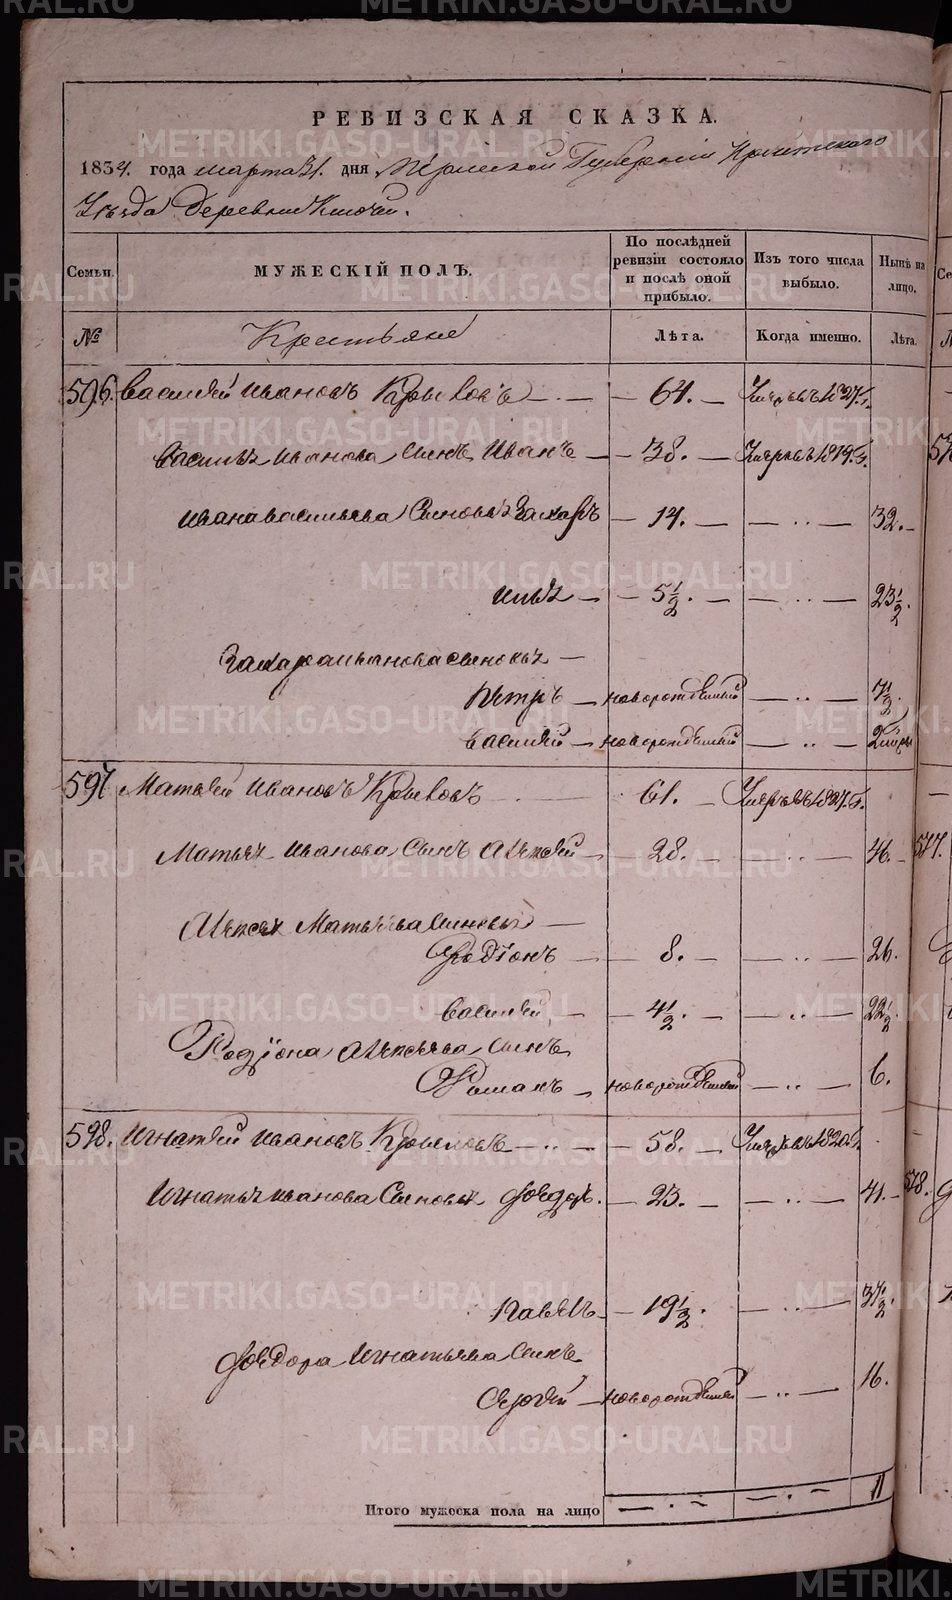 РЕВИЗСКАЯ СКАЗКА.
1834. года марта 31. дня Пермской Губернiи
Уѣзда Деревни Ключи.
Семьи. МУЖЕСКІЙ ПОЛЪ. По послѣдней ревизіи состояло и послѣ оной прибыло. Изъ того числа выбыло. Нынѣ на лицо.
№ Крестьяне Лѣта. Когда именно. Лѣта.
596. Василей Ивановъ 64. Умеръ въ 1827. г.
Васильѧ Иванова сынъ Иванъ 38. Умеръ въ 1819. г.
Ивана Васильева сыновьѧ Захаръ 14. 32.
Ильѧ 5½. 23½.
Захара Иванова сыновьѧ
Петръ новорожденный 7½.
Василей новорожденный 2
597 Матвей Ивановъ 61. Умеръ въ 1827. г.
Матвеѧ Иванова сынъ Алексей 28. 46.
Алексеѧ Матвеева сыновьѧ
Родiонъ 8. 26.
Василей 4½. 22½.
Родiона Алексеева сынъ
Романъ новорожденный 6.
598. Игнатей Ивановъ 58. Умеръ въ 1820. г.
Игнатьѧ Иванова сыновьѧ Ѳедоръ. 23. 41.
Павелъ 19½. 37½.
Ѳедора Игнатьева сынъ
Сергей новорожденный 16.
Итого мужеска пола на лицо 11
METRIKI.GASO-URAL.RU